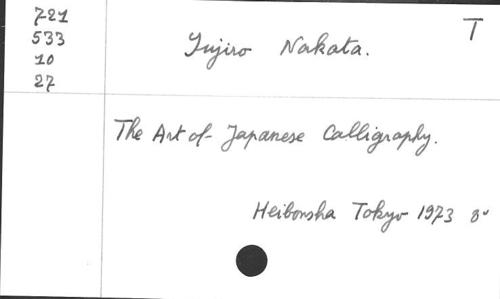 721
533
10
27
T
Yujiro Nakata.
The Art of Japanese Calligraphy.
Heibonsha Tokyo 1973 8º